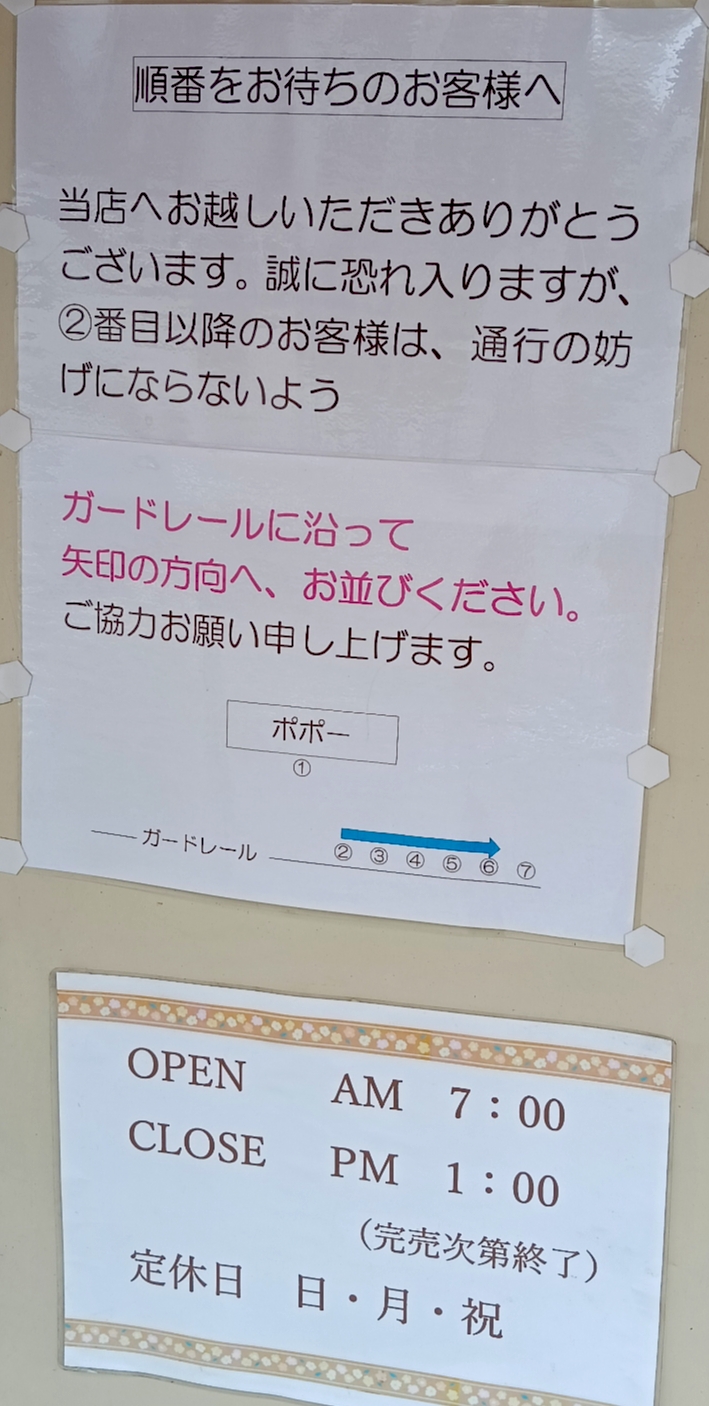 順番をお待ちのお客様へ
当店へお越しいただきありがとう
ございます。誠に恐れ入りますが、
②番目以降のお客様は、通行の妨
げにならないよう
ガードレールに沿って
矢印の方向へ、お並びください。
ご協力お願い申し上げます。
ポポー
①
ガードレール
② ③ ④ ⑤ ⑥ ⑦
OPEN AM 7：00
CLOSE PM 1：00
（完売次第終了）
定休日 日・月・祝